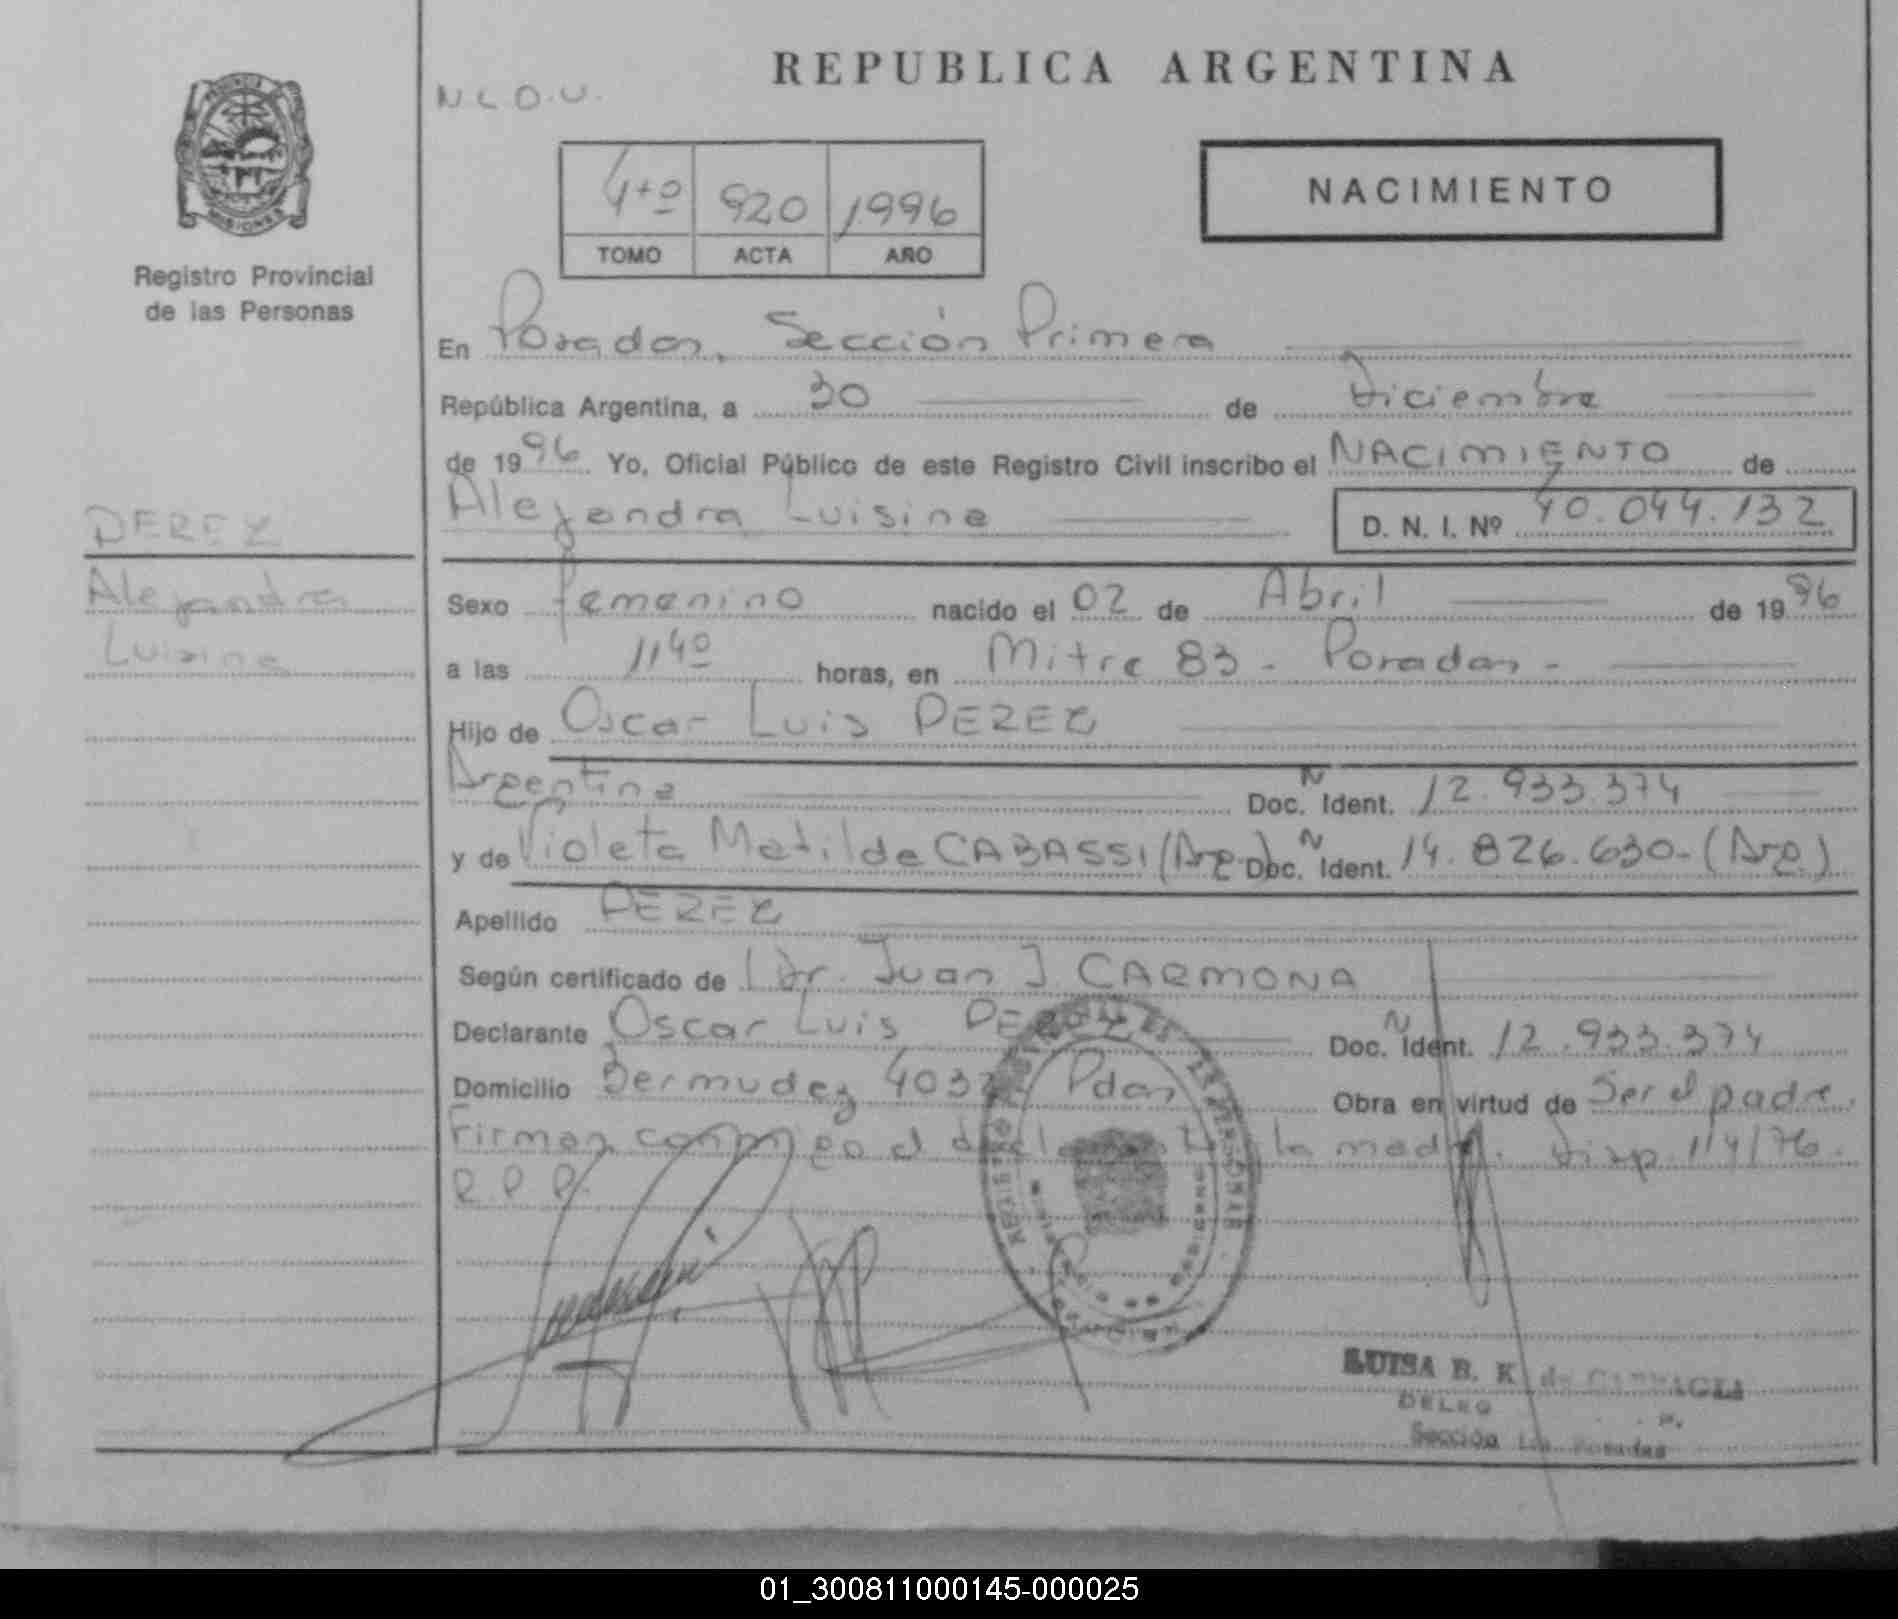 REPUBLICA ARGENTINA
N L O . U .
PROVINCIA
MISIONES
Registro Provincial
de las Personas
4to 920 1996
TOMO ACTA AÑO
NACIMIENTO
En Posadas, Sección Primera
República Argentina, a 30 de Diciembre
de 1996. Yo, Oficial Público de este Registro Civil inscribo el NACIMIENTO de
Alejandra Luisina D. N. I. Nº 40.044.132
PEREZ
Alejandra
Luisina
Sexo femenino nacido el 02 de Abril de 1996
a las 11 40 horas, en Mitre 83 - Posadas -
Hijo de Oscar Luis PEREZ
Argentina Doc. N Ident. 12.933.374
y de Violeta Matilde CABASSI (Arg.) Doc. N Ident. 14.826.630- (Arg.)
Apellido PEREZ
Según certificado de Dr. Juan J. CARMONA
Declarante Oscar Luis PEREZ Doc. N Ident. 12.933.374
Domicilio Bermudez 4037 Pdas Obra en virtud de Ser el padre.
Firman conmigo el declarante y la madre. Disp. 1/4/76.
R.P.P.
LUISA B. K. de
DELEG
Sección 1ra. Posadas
01_300811000145-000025